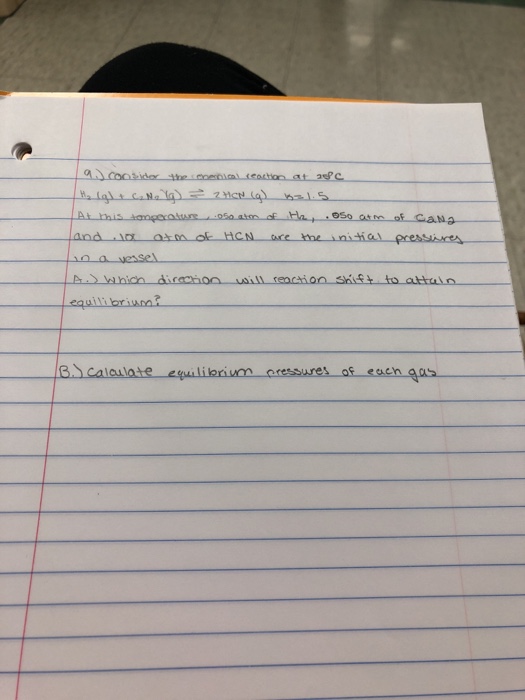 9.) Consider the chemical reaction at
H₂ (g) + C₂N₂ (g) ⇌ 2HCN (g) K=1.5
At this temperature, .050 atm of H₂, .050 atm of C₂N₂
and atm of HCN are the initial pressures
in a vessel
A.) Which direction will reaction shift to attain
equilibrium?
B.) Calculate equilibrium pressures of each gas